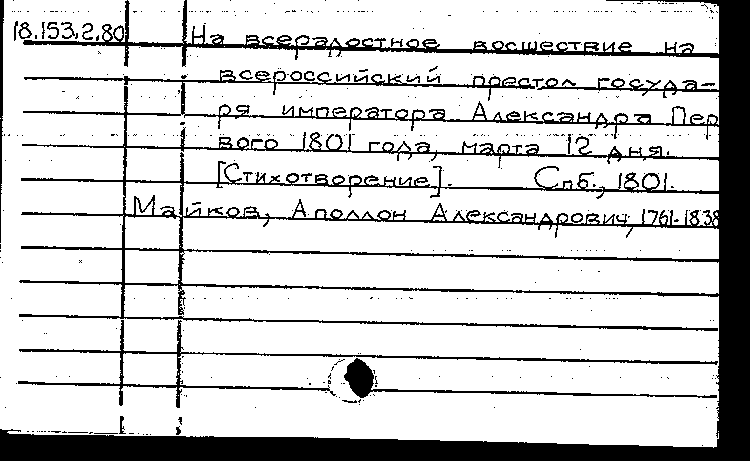 18.153.2.80 На всерадостное восшествие на
всероссийский престол госуда-
ря императора Александра Пер
вого 1801 года, марта 12 дня.
[Стихотворение]. Спб., 1801.
Майков, Аполлон Александрович, 1761-1838